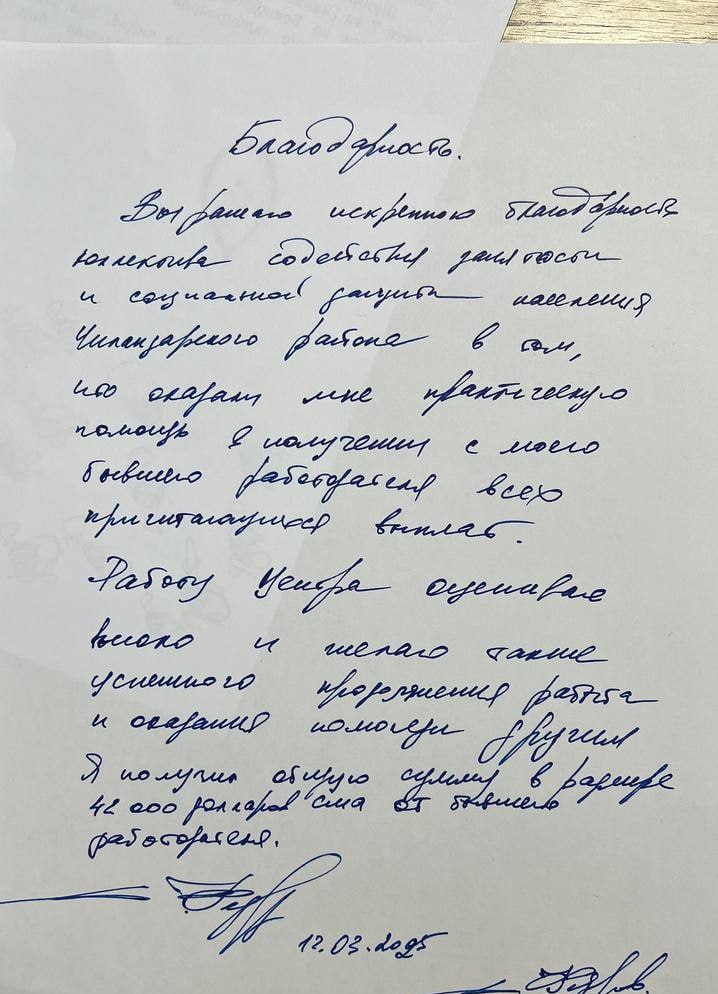 Благодарность.
Выражаю искреннюю благодарность
коллектива содействия занятости
и социальной защиты населения
Чиланзарского района в том,
что оказали мне практическую
помощь в получении с моего
бывшего работодателя всех
причитающихся выплат.
Работу Центра оцениваю
высоко и желаю также
успешного продолжения работы
и оказания помощи другим
Я получил общую сумму в размере
42 000 долларов сша от бывшего
работодателя.
12.03.2025